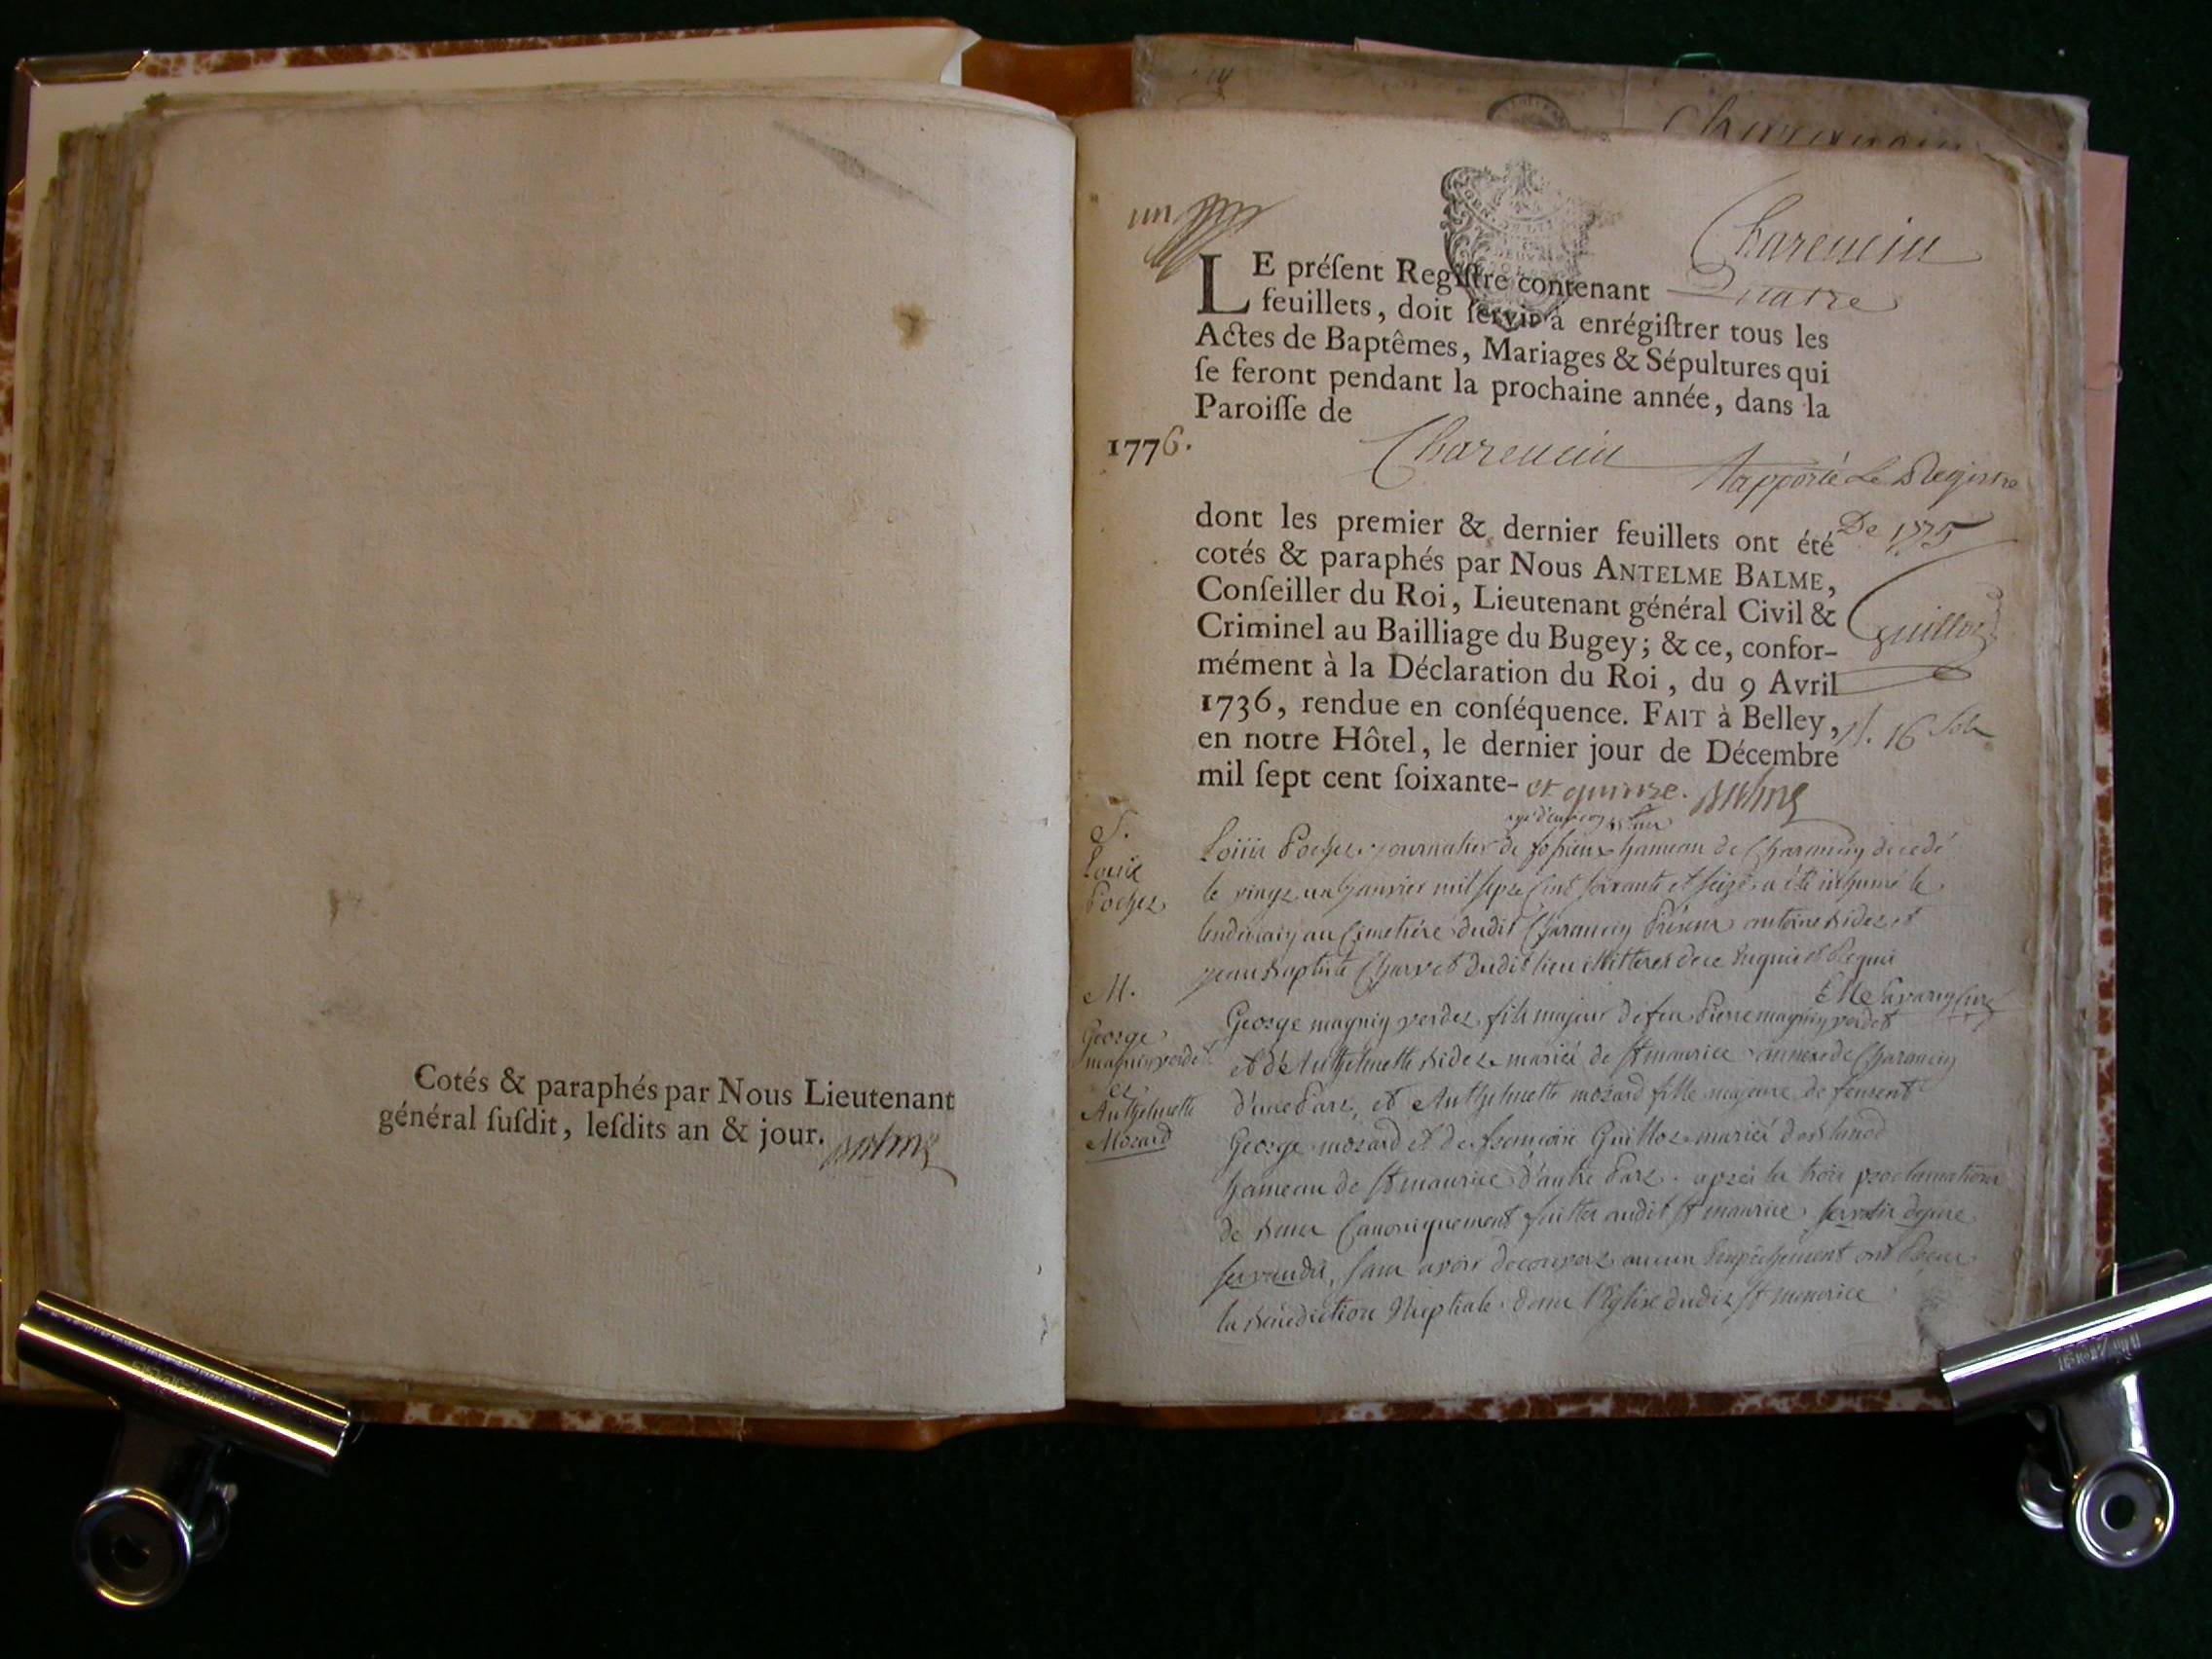 Cotés & paraphés par Nous Lieutenant
général suſdit, leſdits an & jour. Balme
un
Charencin
LE préſent Regiſtre contenant Quatre
feuillets, doit ſervir à enrégiſtrer tous les
Actes de Baptêmes, Mariages & Sépultures qui
ſe feront pendant la prochaine année, dans la
Paroiſſe de
1776.
Charencin
Rapporté Le Registre
De 1775
dont les premier & dernier feuillets ont été
cotés & paraphés par Nous ANTELME BALME,
Conſeiller du Roi, Lieutenant général Civil &
Criminel au Bailliage du Bugey; & ce, confor-
mément à la Déclaration du Roi, du 9 Avril
1736, rendue en conſéquence. FAIT à Belley,
en notre Hôtel, le dernier jour de Décembre
mil ſept cent ſoixante- et quinze. Balme
16 sols
S.
Louis
Pochet
Louis Pochet journalier de hameau de Charancin decedé
le vingt un janvier mil sept cent soixante et seize a été inhumé le
lendemain au Cimetière dudit Charancin Présens antoine Bidet et
jean Baptiste Charvet dudit lieu illitterés de ce Enquis et Requis
Savarin curé
M.
George
magnin verdet
et
Anthelmette
Mozard
George magnin verdet fils majeur de feu Pierre magnin verdet
et de Anthelmette Bidet mariés de St maurice annexe de Charancin
d'une Part, et Anthelmette mozard fille majeure de
George mozard et de françoise Guillot mariés
hameau de St maurice d'autre Part. après les trois proclamations
de Bans Canoniquement faittes audit St maurice servatis de jure
servandis, sans avoir decouvert aucun Empêchement ont Reçu
la Bénédiction Nuptiale dans l'Eglise dudit St maurice